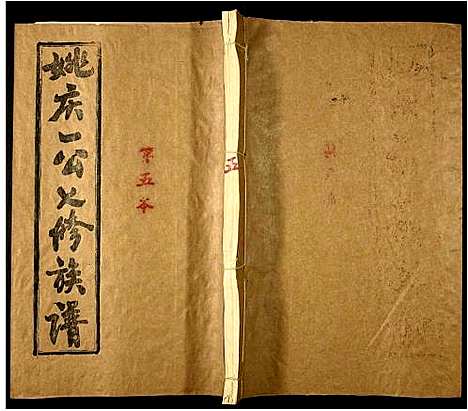 姚庆一公七修族譜
第五本
五